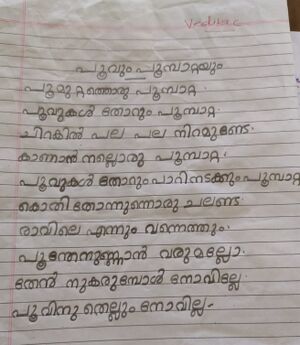 പൂവും പൂമ്പാറ്റയും
പൂമുറ്റത്തൊരു പൂമ്പാറ്റ.
പൂവുകൾ തോറും പൂമ്പാറ്റ.
ചിറകിൽ പല പല നിറമുണ്ടേ.
കാണാൻ നല്ലൊരു പൂമ്പാറ്റ.
പൂവുകൾ തോറും പാറിനടക്കും പൂമ്പാറ്റ
കൊതി തോന്നുന്നൊരു ചലണ്ട.
രാവിലെ എന്നും വന്നെത്തും.
പൂന്തേനുണ്ണാൻ വരുമല്ലോ.
തേൻ നുകരുമ്പോൾ നോവില്ലേ.
പൂവിനു തെല്ലും നോവില്ല.